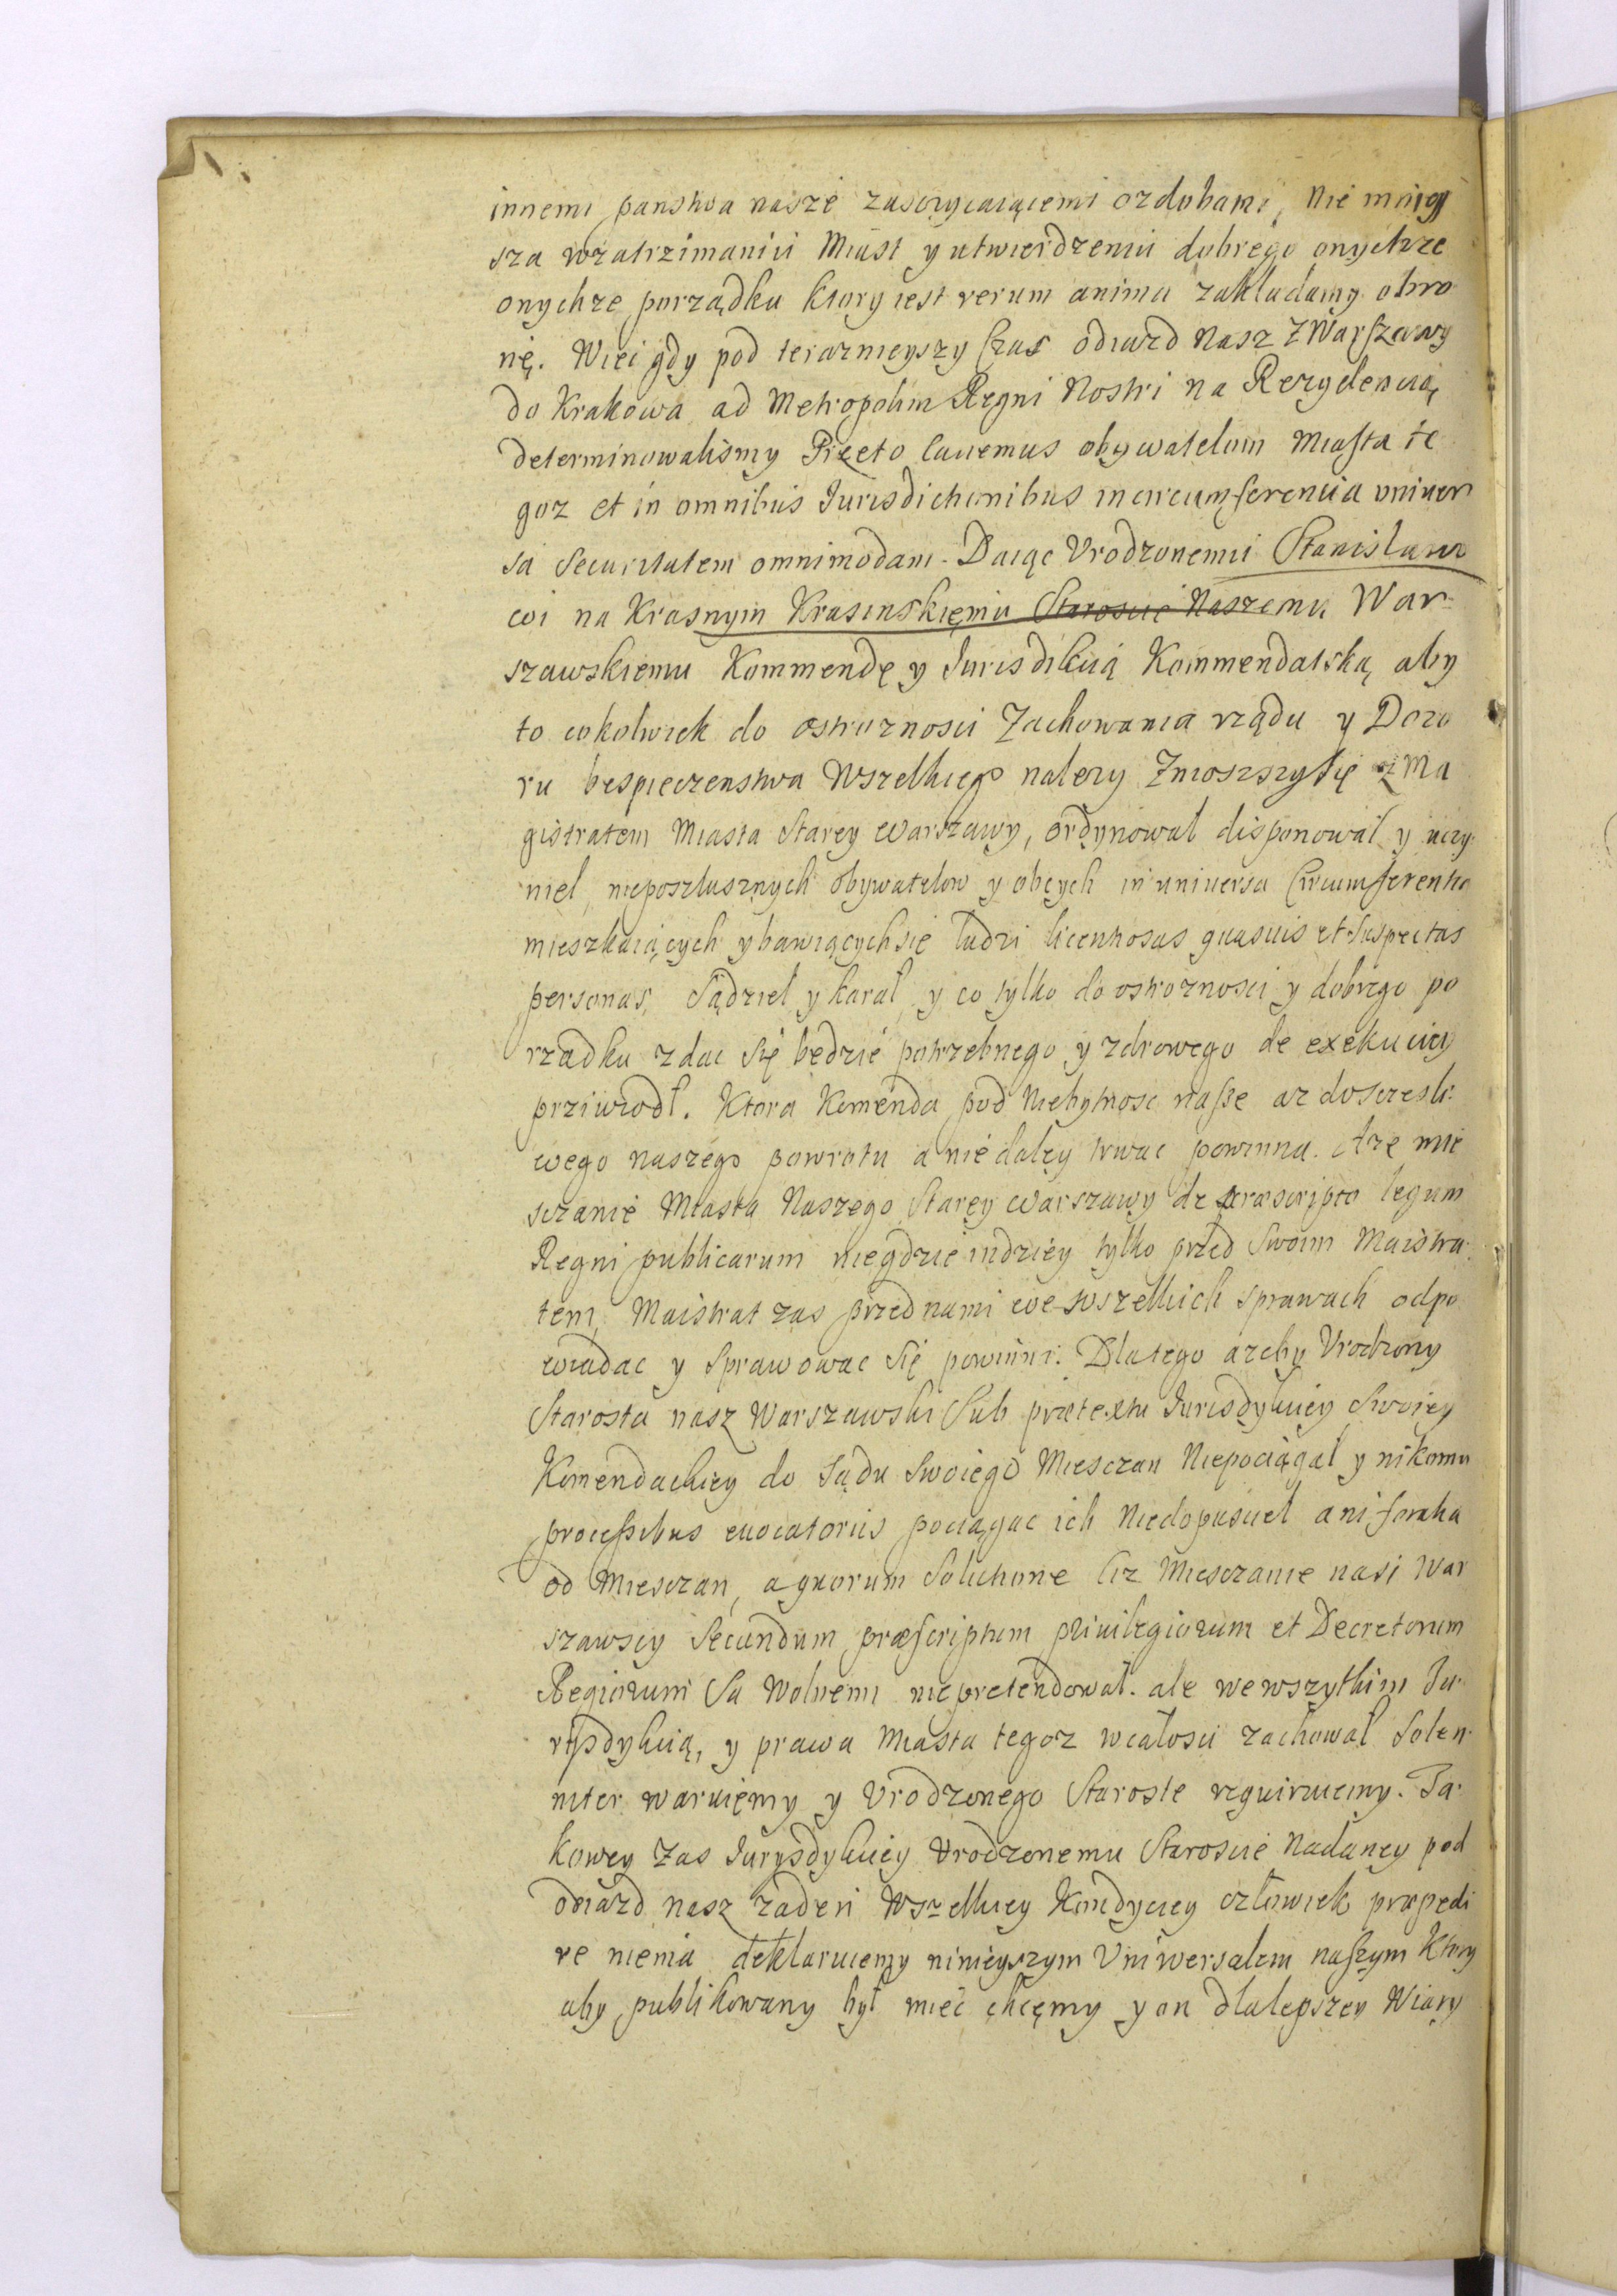 innemi panstwa nasze zasczycaiącemi ozdobami, nie mniey
sza wzatrzimaniu Miast y utwierdzeniu dobrego onychze
onychze porządku ktory iest rerum anima zakladamy obro
nę. Wieć gdy pod teraznieyszy Czas odiazd Nasz z Warszawy
do Krakowa ad Metropolim Regni Nostri na Rezydencią
determinowalismy Przeto cavemus obywatelom Miasta te
goz et in omnibus Jurisdictionibus in circumferencia univer
sa securitatem omnimodam. Daiąc Vrodzonemu Stanislawo
wi na Krasnym Krasinskięmu Staroscie Naszemu War
szawskiemu Kommendę y Jurisdikcią Kommendatską aby
to cokolwiek do ostroznosci Zachowania rządu y Dozo
ru bespieczenstwa Wszelkiego nalezy Znioszszy się z Ma
gistratem Miasta Starey Warszawy, ordynował disponował y uczy
niel, nieposzlusznych obywatelow y obcych in universa Circumferentia
mieszkaiących y bawiących się ludzi licentiosas quasvis et suspectas
personas, Sądziel y karał, y co tylko do ostroznosci y dobrego po
rzadku zdac Się będzie potrzebnego y zdrowego de exekuciey
prziwiodł. Ktora Komenda pod Niebytnosc nasze az dosczesli:
wego naszego powrotu a nie daley trwac powinna. A że mie
sczanie Miasta Naszego Starey Warszawy de praescripto legum
Regni publicarum niegdzie indziey tylko przed Swoim Maistra:
tem, Maistrat zas przed nami we wszelkich sprawach odpo
wiadac y Sprawowac Się powinni. Dlatego azeby Vrodzony
Starosta nasz Warszawski Sub prætextu Jurisdykciey Swoiey
Komendackiey do Sądu Swoiego Miesczan Niepociągał y nikomu
processibus evocatoriis pociągac ich Niedopusciel ani
od Miesczan, a quorum Solutione ciz Miesczanie nasi War
szawscy Secundum præscriptum privilegiorum et Decretorum
Regiorum Sa Wolnemi niepretendował. ale we wszytkim Ju:
rysdykcią, y prawa Miasta tegoz wcałosci zachował Solen:
niter waruięmy y Vrodzonego Staroste requiruiemy. Ta:
kowey Zas Jurysdykciey Vrodzonemu Staroscie Nadaney pod
odiazd nasz żaden Wszelkiey Kondyciey człowiek præpedi
re niema deklaruiemy ninieyszym Vniwersalem naszym Ktory
aby publikowany był mieć chcęmy y on dlalepszey Wiary